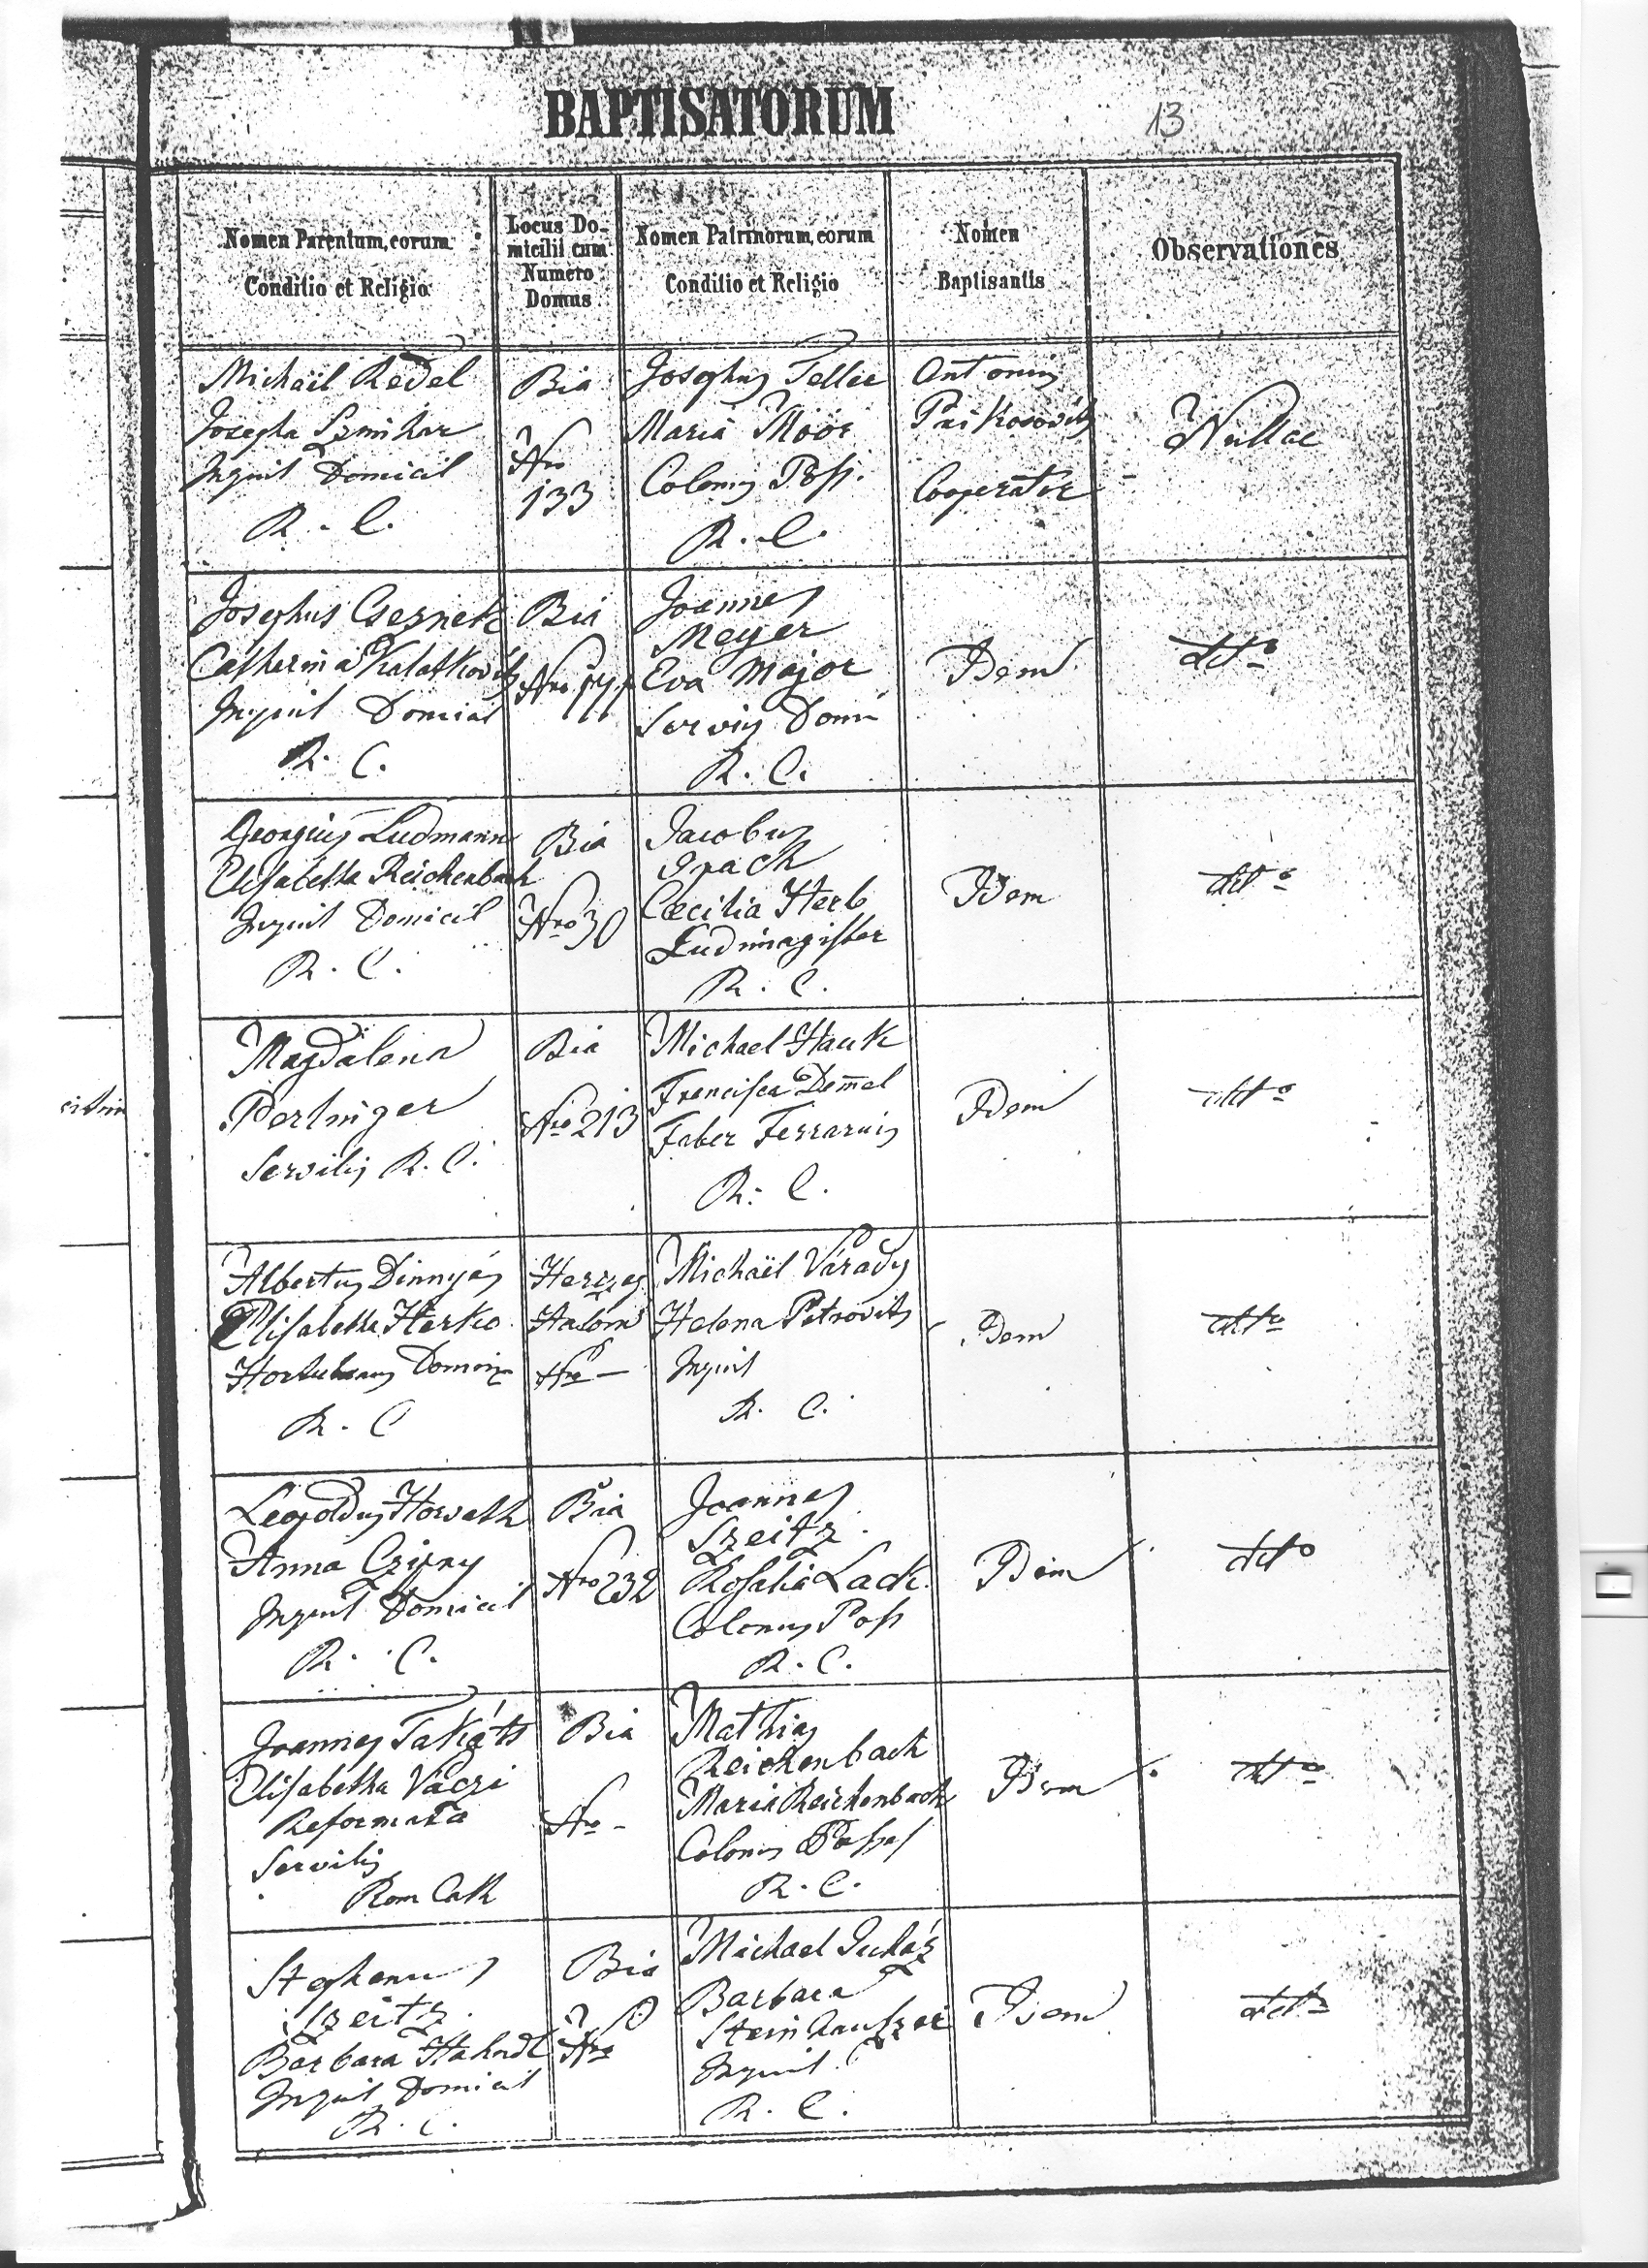 BAPTISATORUM
13
Nomen Parentum, eorum
Conditio et Religio
Locus Do-
micilii cum
Numero
Domus
Nomen Patrinorum, eorum
Conditio et Religio
Nomen
Baptisantis
Observationes
Michaël Redel
Josepha
Inquil Domicil
R. C.
Bia
Nro
133
Josephus Teller
Maria Moor
Colonus Poss.
R. C.
Antonius
Cooperator
Nullae
Josephus Cseznek
Catharina
Inquil Domicil
R. C.
Bia
Nro
Joannes
Meyer
Eva Major
Servus Domi
R. C.
Idem
dtto
Georgius Ludmann
Elisabetha Reichenbach
Inquil Domicil
R. C.
Bia
Nro 30
Jacobus
Cæcilia Herb
Ludimagister
R. C.
Idem
dtto
Magdalena
Perlinger
Servilis R. C.
Bia
Nro 213
Michael Hauk
Francisca Demel
Faber Ferrarius
R. C.
Idem
dtto
Albertus Dinnyés
Elisabetha Herko
Hortulanus
R. C
Herczeg
Halom
Nro —
Michaël Várady
Helena Petrovits
Inquil
R. C.
Idem
dtto
Leopoldus Horvath
Anna
Inquil Domicil
R. C.
Bia
Nro 232
Joannes
Szeitz
Rosalia Lack
Colonus Poss
R. C.
Idem
dtto
Joannes Takáts
Elisabetha Váczi
Reformata
Servilis
Rom Cath
Bia
Nro -
Mathias
Reichenbach
Maria Reichenbach
Colonus
R. C.
Idem
dtto
Stephanus
Szeitz
Barbara
Inquil Domicil
R. C.
Bia
Nro
Michael Juház
Barbara
Steinhauszer
Inquil
R. C.
Idem
dtto